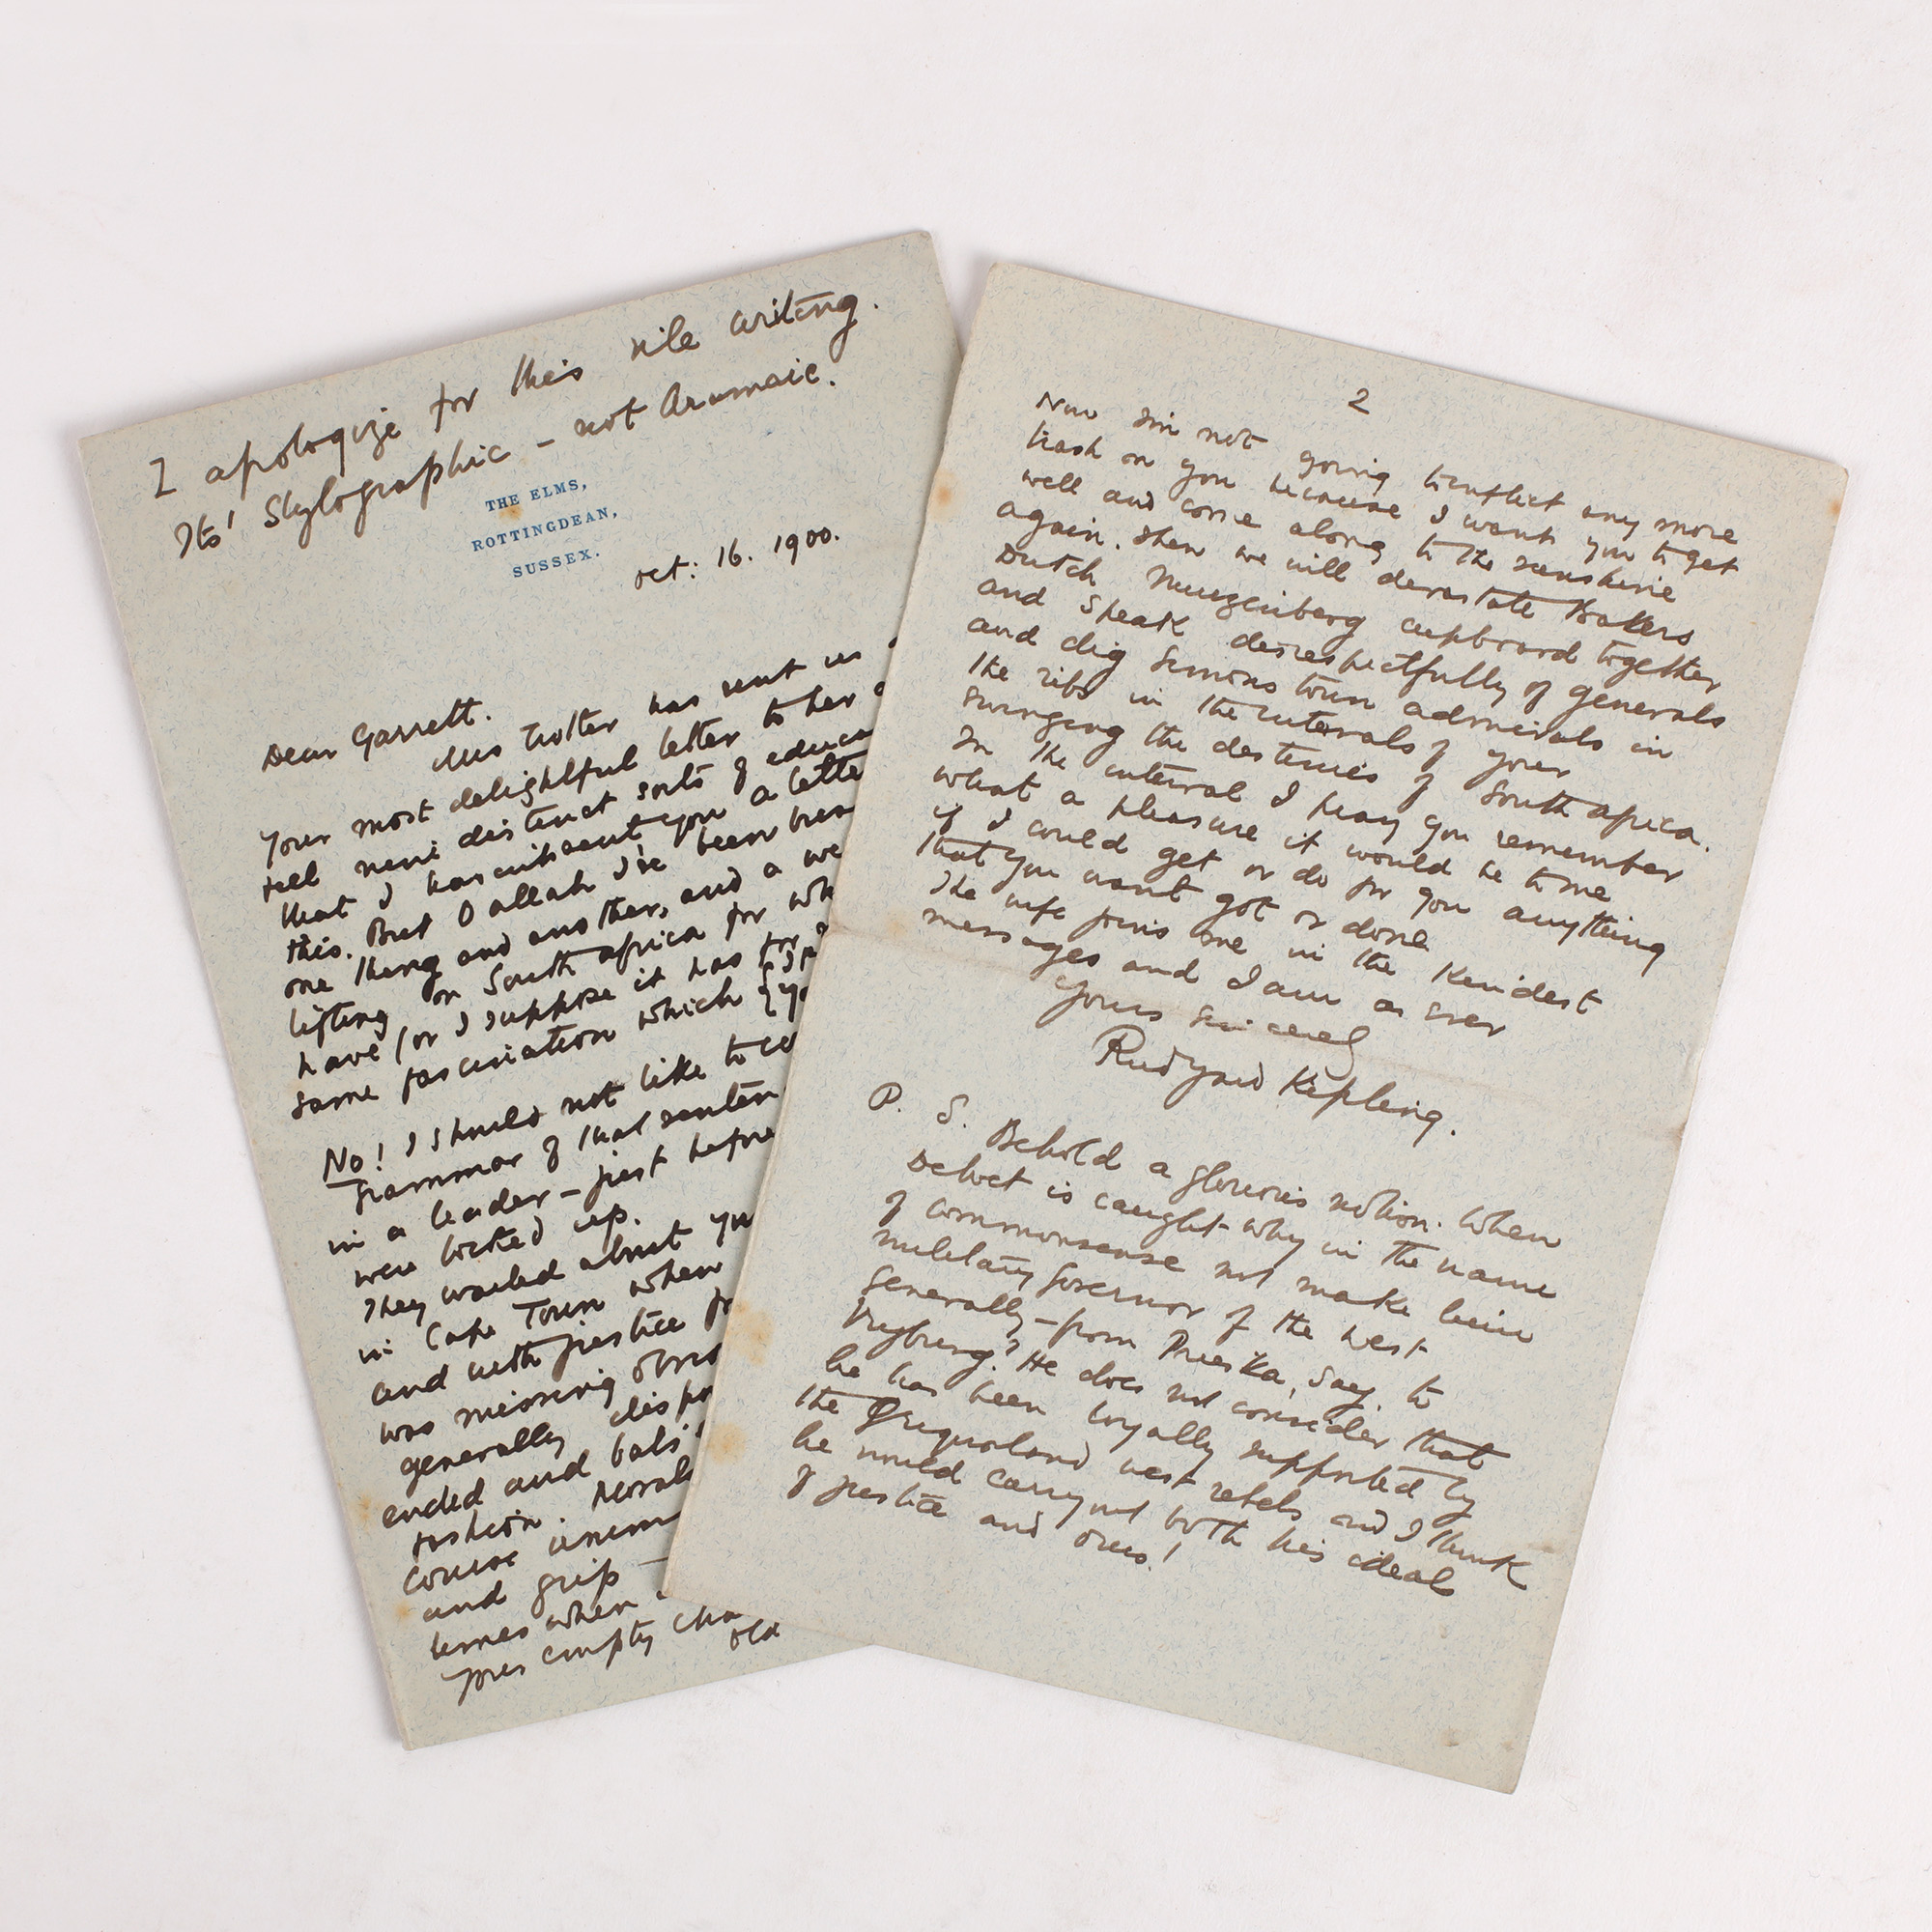 I apologize for this vile writing.
Its' Stylographic – not Aramaic.
THE ELMS,
ROTTINGDEAN,
SUSSEX.
Oct: 16. 1900.
Dear Garrett.
Mrs Trotter has sent us
your most delightful letter to her
feel nine distinct sorts of
that I haven't sent you a
this. But O allah I've been
one thing and another, and a
lifting on South Africa for
have (or I suppose it has for
same fascination which
No! I should not like to
grammar of that
in a leader – just before
were locked up.
They wailed about
in Cape Town when
and with justice
was missing
generally
ended and
fashion.
course
and grip –
times when
your empty
old
2
Now I'm not going to inflict any more
trash on you because I want you to get
well and come along to the sunshine
again. Then we will devastate Bakers
Dutch Muizenberg cupboard together
and speak disrespectfully of generals
and dig Simons town admirals in
the ribs in the intervals of your
swinging the destinies of South Africa.
In the interval I pray you remember
what a pleasure it would be to me
if I could get or do for you anything
that you want got or done
The wife joins me in the kindest
messages and I am as ever
Yours sincerely
Rudyard Kipling.
P. S. Behold a glorious notion. When
Dewet is caught why in the name
of commonsense not make him
military governor of the West
generally – from Prieska, say, to
Vryburg? He does not consider that
he has been loyally supported by
the Griqualand west rebels and I think
he would carry out both his ideal
of justice and ours!